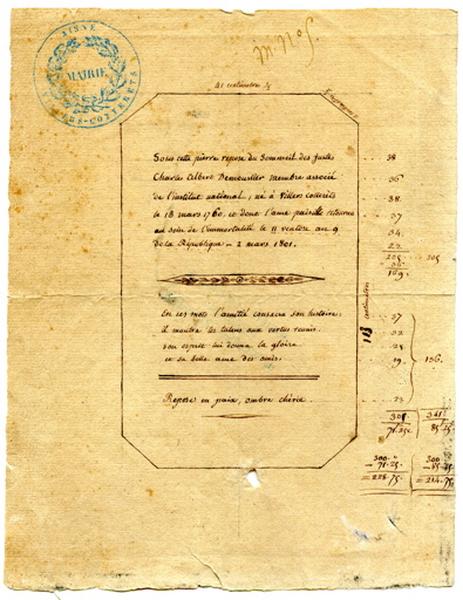 AISNE
MAIRIE
VILLERS-COTTERETS
41 centimètres ½
Sous cette pierre repose du Sommeil des justes
Charles Albert Demoustier membre associé
de l'institut national, né à Villers cotterêts
le 18 mars 1760, et dont l'ame paisible retourna
au sein de l'immortalité le 11 ventôse an 9
de la République = 2 mars 1801.
En ces mots l'amitié consacra son histoire:
il montra les talens aux vertus reunis.
son esprit lui donna la gloire
et sa belle ame des amis.
Repose en paix, ombre chérie.
38
36
38.
37
34.
22.
205
205
37
32
19.
156.
23
centimètres
71.25
85 25
300
300
71.25.
= 228.75.
= 214.75